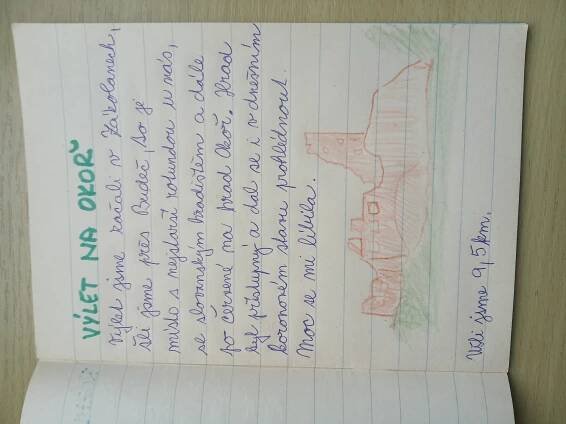 VÝLET NA OKOŘ
Výlet jsme začali v Zákolanech,
šli jsme přes Budeč, to je
místo s nejstarší rotundou u nás,
se slovanským hradištěm a dále
po červené na hrad Okoř. Hrad
byl přístupný a dal se i v dnešním
koronovém stavu prohlédnout.
Moc se mi líbila.
Ušli jsme 9,5 km.